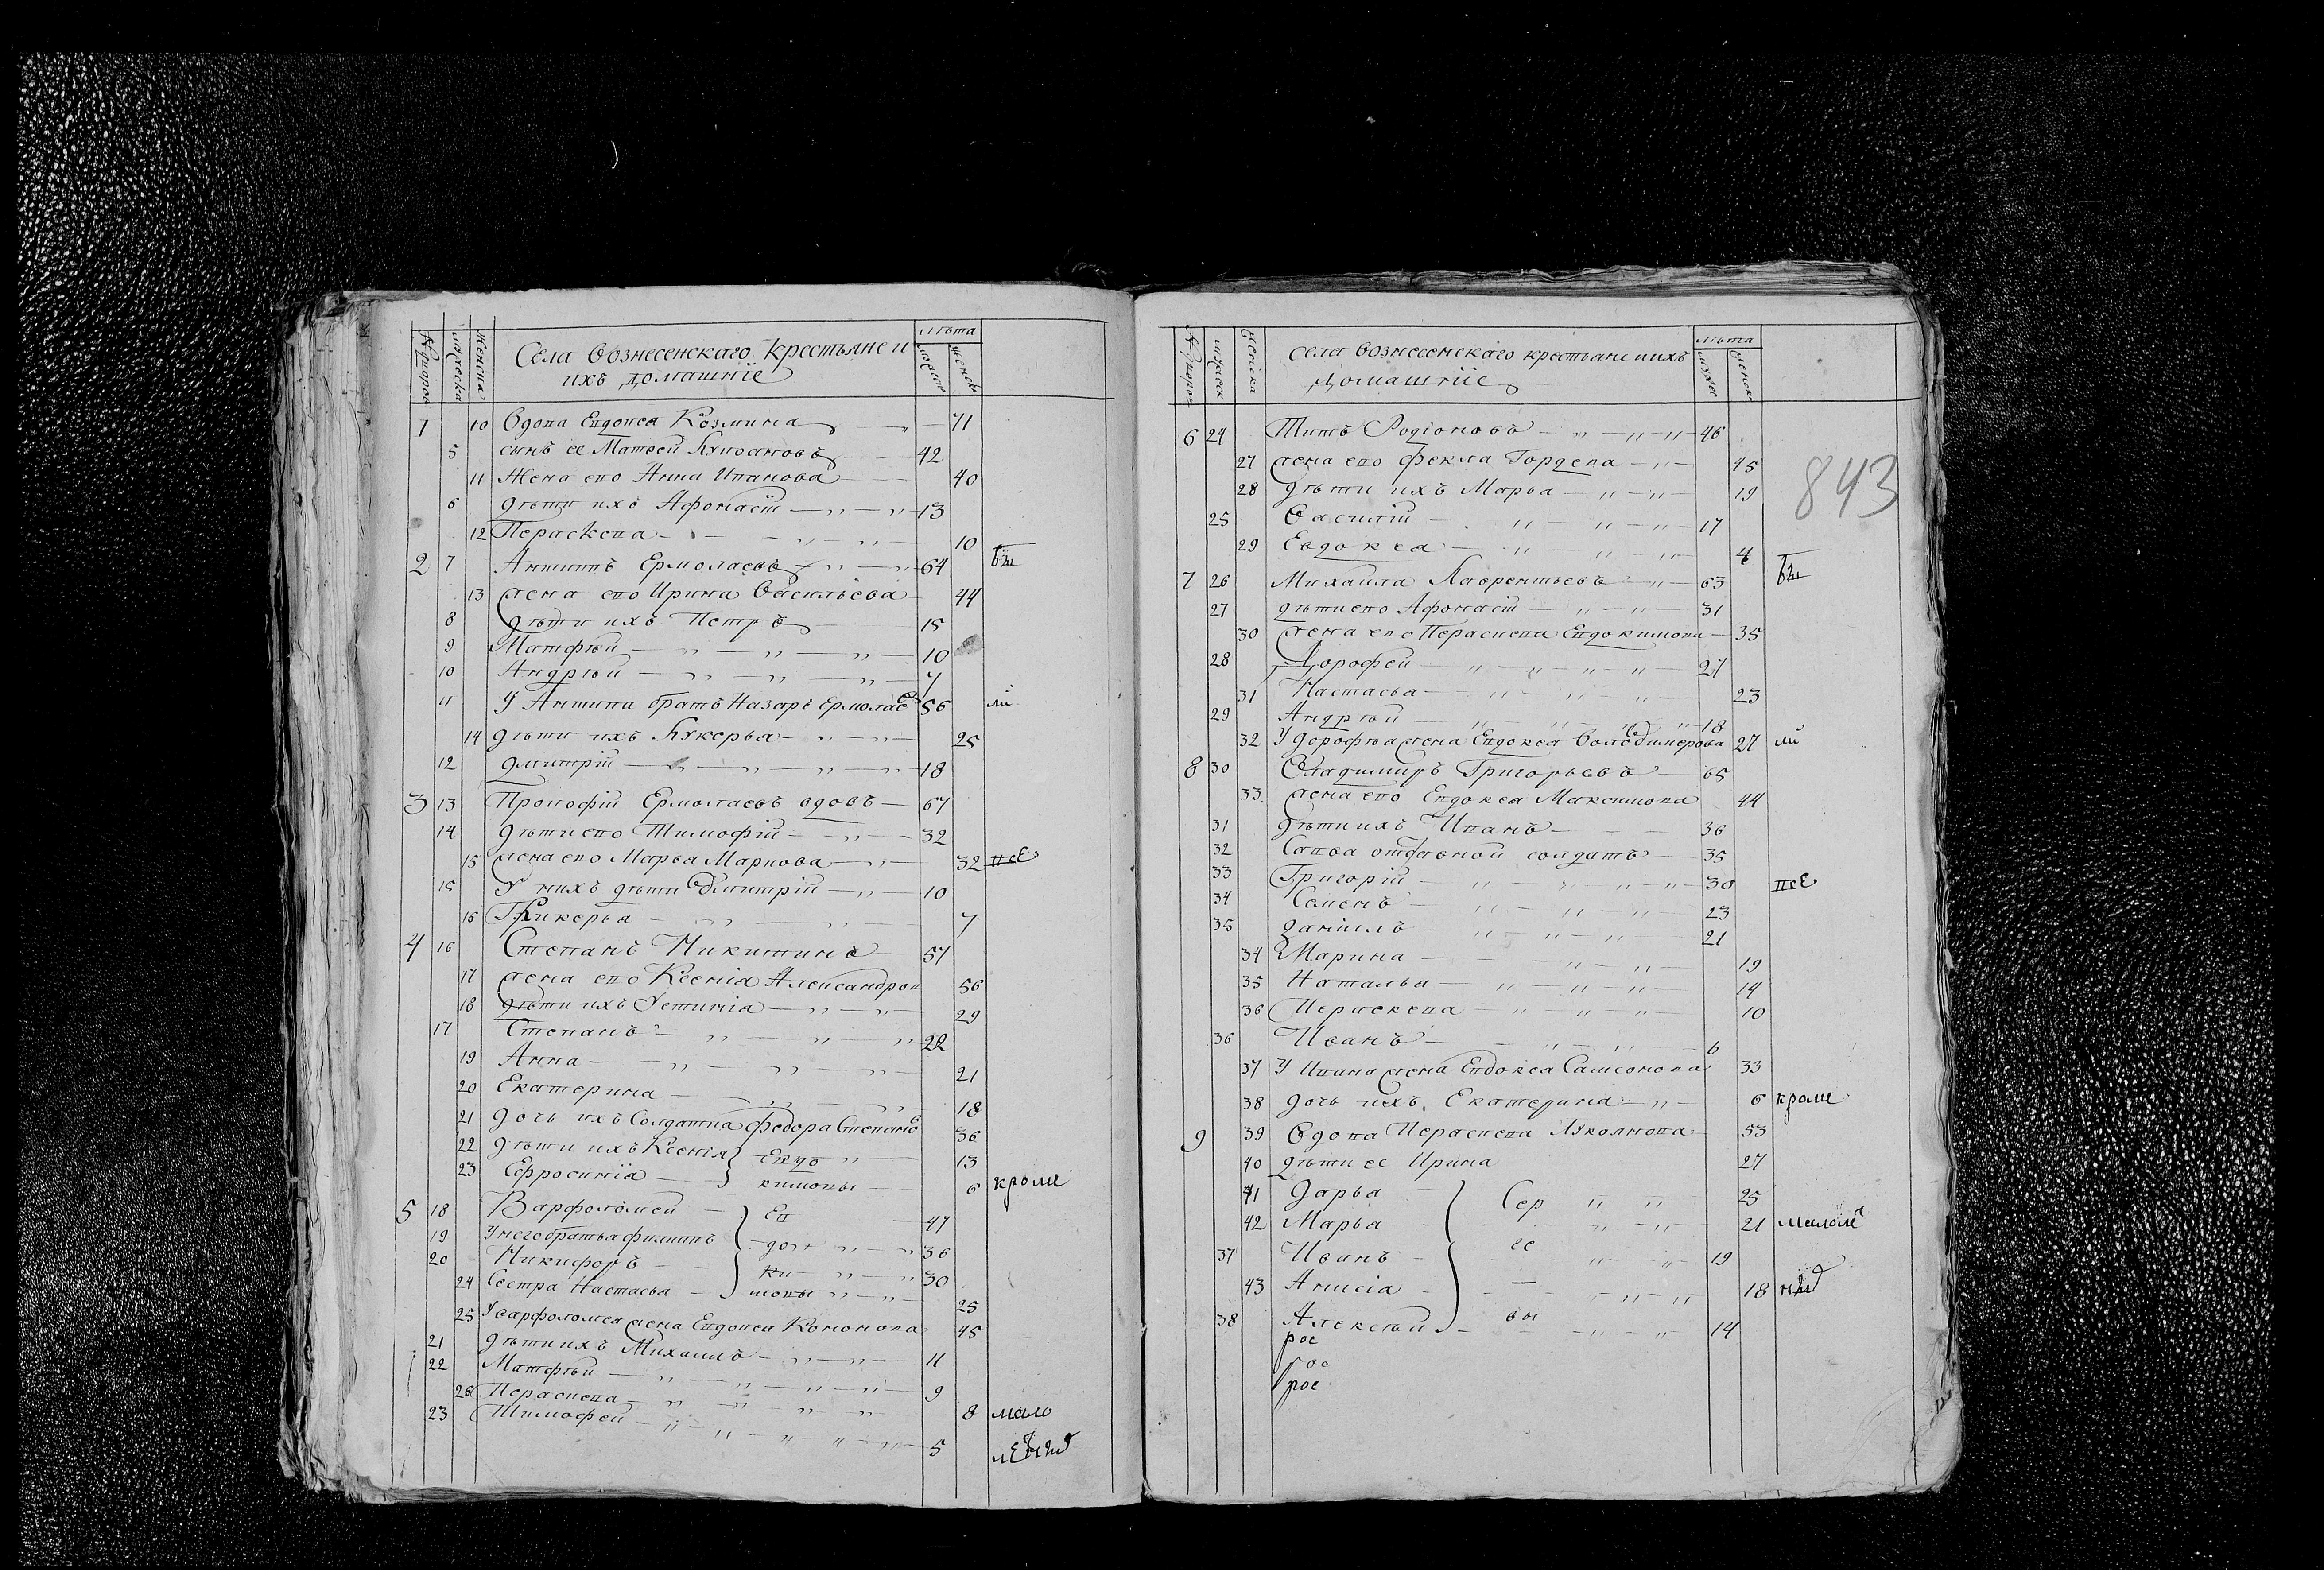 № дворовъ мужеска женска Села Вознесенскаго крестьяне и лѣта
ихъ домашніе мужес женск
1 10 Вдова Евдокея Козмина 71
5 сынъ ее Матвей 42
11 Жена ево Анна Иванова 40
6 дѣти ихъ Афонасій 13
12 Пераскева 10
2 7 Антипъ Ермолаевъ 64 бы
13 жена ево Ирина Васильева 44
8 дѣти ихъ Петръ 15
9 Матфѣй 10
10 Андрѣй 7
11 У Антипа братъ Назаръ Ермолаевъ 56 ли
14 дѣти ихъ Лукерья 25
12 Дмитрій 18
3 13 Прокофій Ермолаевъ вдовъ 67
14 дѣти ево Тимофій 32
15 жена ево Марья Маркова 32 все
15 У нихъ дѣти Дмитрій 10
16 Гликерья 7
4 16 Степанъ Никитинъ 57
17 жена ево Ксенія Александров 56
18 дѣти ихъ Устинія 29
17 Степанъ 22
19 Анна 21
20 Екатерина 18
21 дочь ихъ Солдатка Федора Степанов 36
22 дѣти ихъ Ксенія Евдо 13
23 Ефросинія кимовы 6 кроме
5 18 Варфоломей Ев 47
19 У него братья Филипъ до 36
20 Никифоръ ки 30
24 Сестра Настасья мовы 25
25 У варфоломея жена Евдокея Кононова 45
21 дѣти ихъ Михаилъ 11
22 Матфѣй 9
26 Пераскева 8 мало
23 Тимофей 5 лѣтнъ
№ дворов мужеск женска села Вознесенскаго крестьяне и ихъ лѣта
домашніе мужес женск
6 24 Титъ Родіоновъ 46
27 жена ево Фекла Гордева 45
843
28 дѣти ихъ Марья 19
25 Василій 17
29 Евдокея 4
7 26 Михайла Лаврентьевъ 63 бы
27 дѣти ево Афонасій 31
30 жена ево Пераскева Евдокимова 35
28 Дорофей 27
31 Настасья 23
29 Андрѣй 18
32 У дорофѣя жена Евдокея Володимерова 27 ли
8 30 Владимиръ Григорьевъ 65
33 жена ево Евдокея Максимова 44
31 дѣти ихъ Иванъ 36
32 Савва отданой солдатъ 35
33 Григорій 30 все
34 Семенъ 23
35 Даніилъ 21
34 Марина 19
35 Наталья 14
36 Пераскева 10
36 Иванъ 6
37 У Ивана жена Евдокея Самсонова 33
38 дочь ихъ Екатерина 6 кроме
9 39 Вдова Пераскева 53
40 дѣти ее Ирина 27
41 Дарья Сер 25
42 Марья 21 малолѣ
37 Иванъ ге 19
43 Анисія 18
38 Алексѣй вы 14
рос
рос
рос